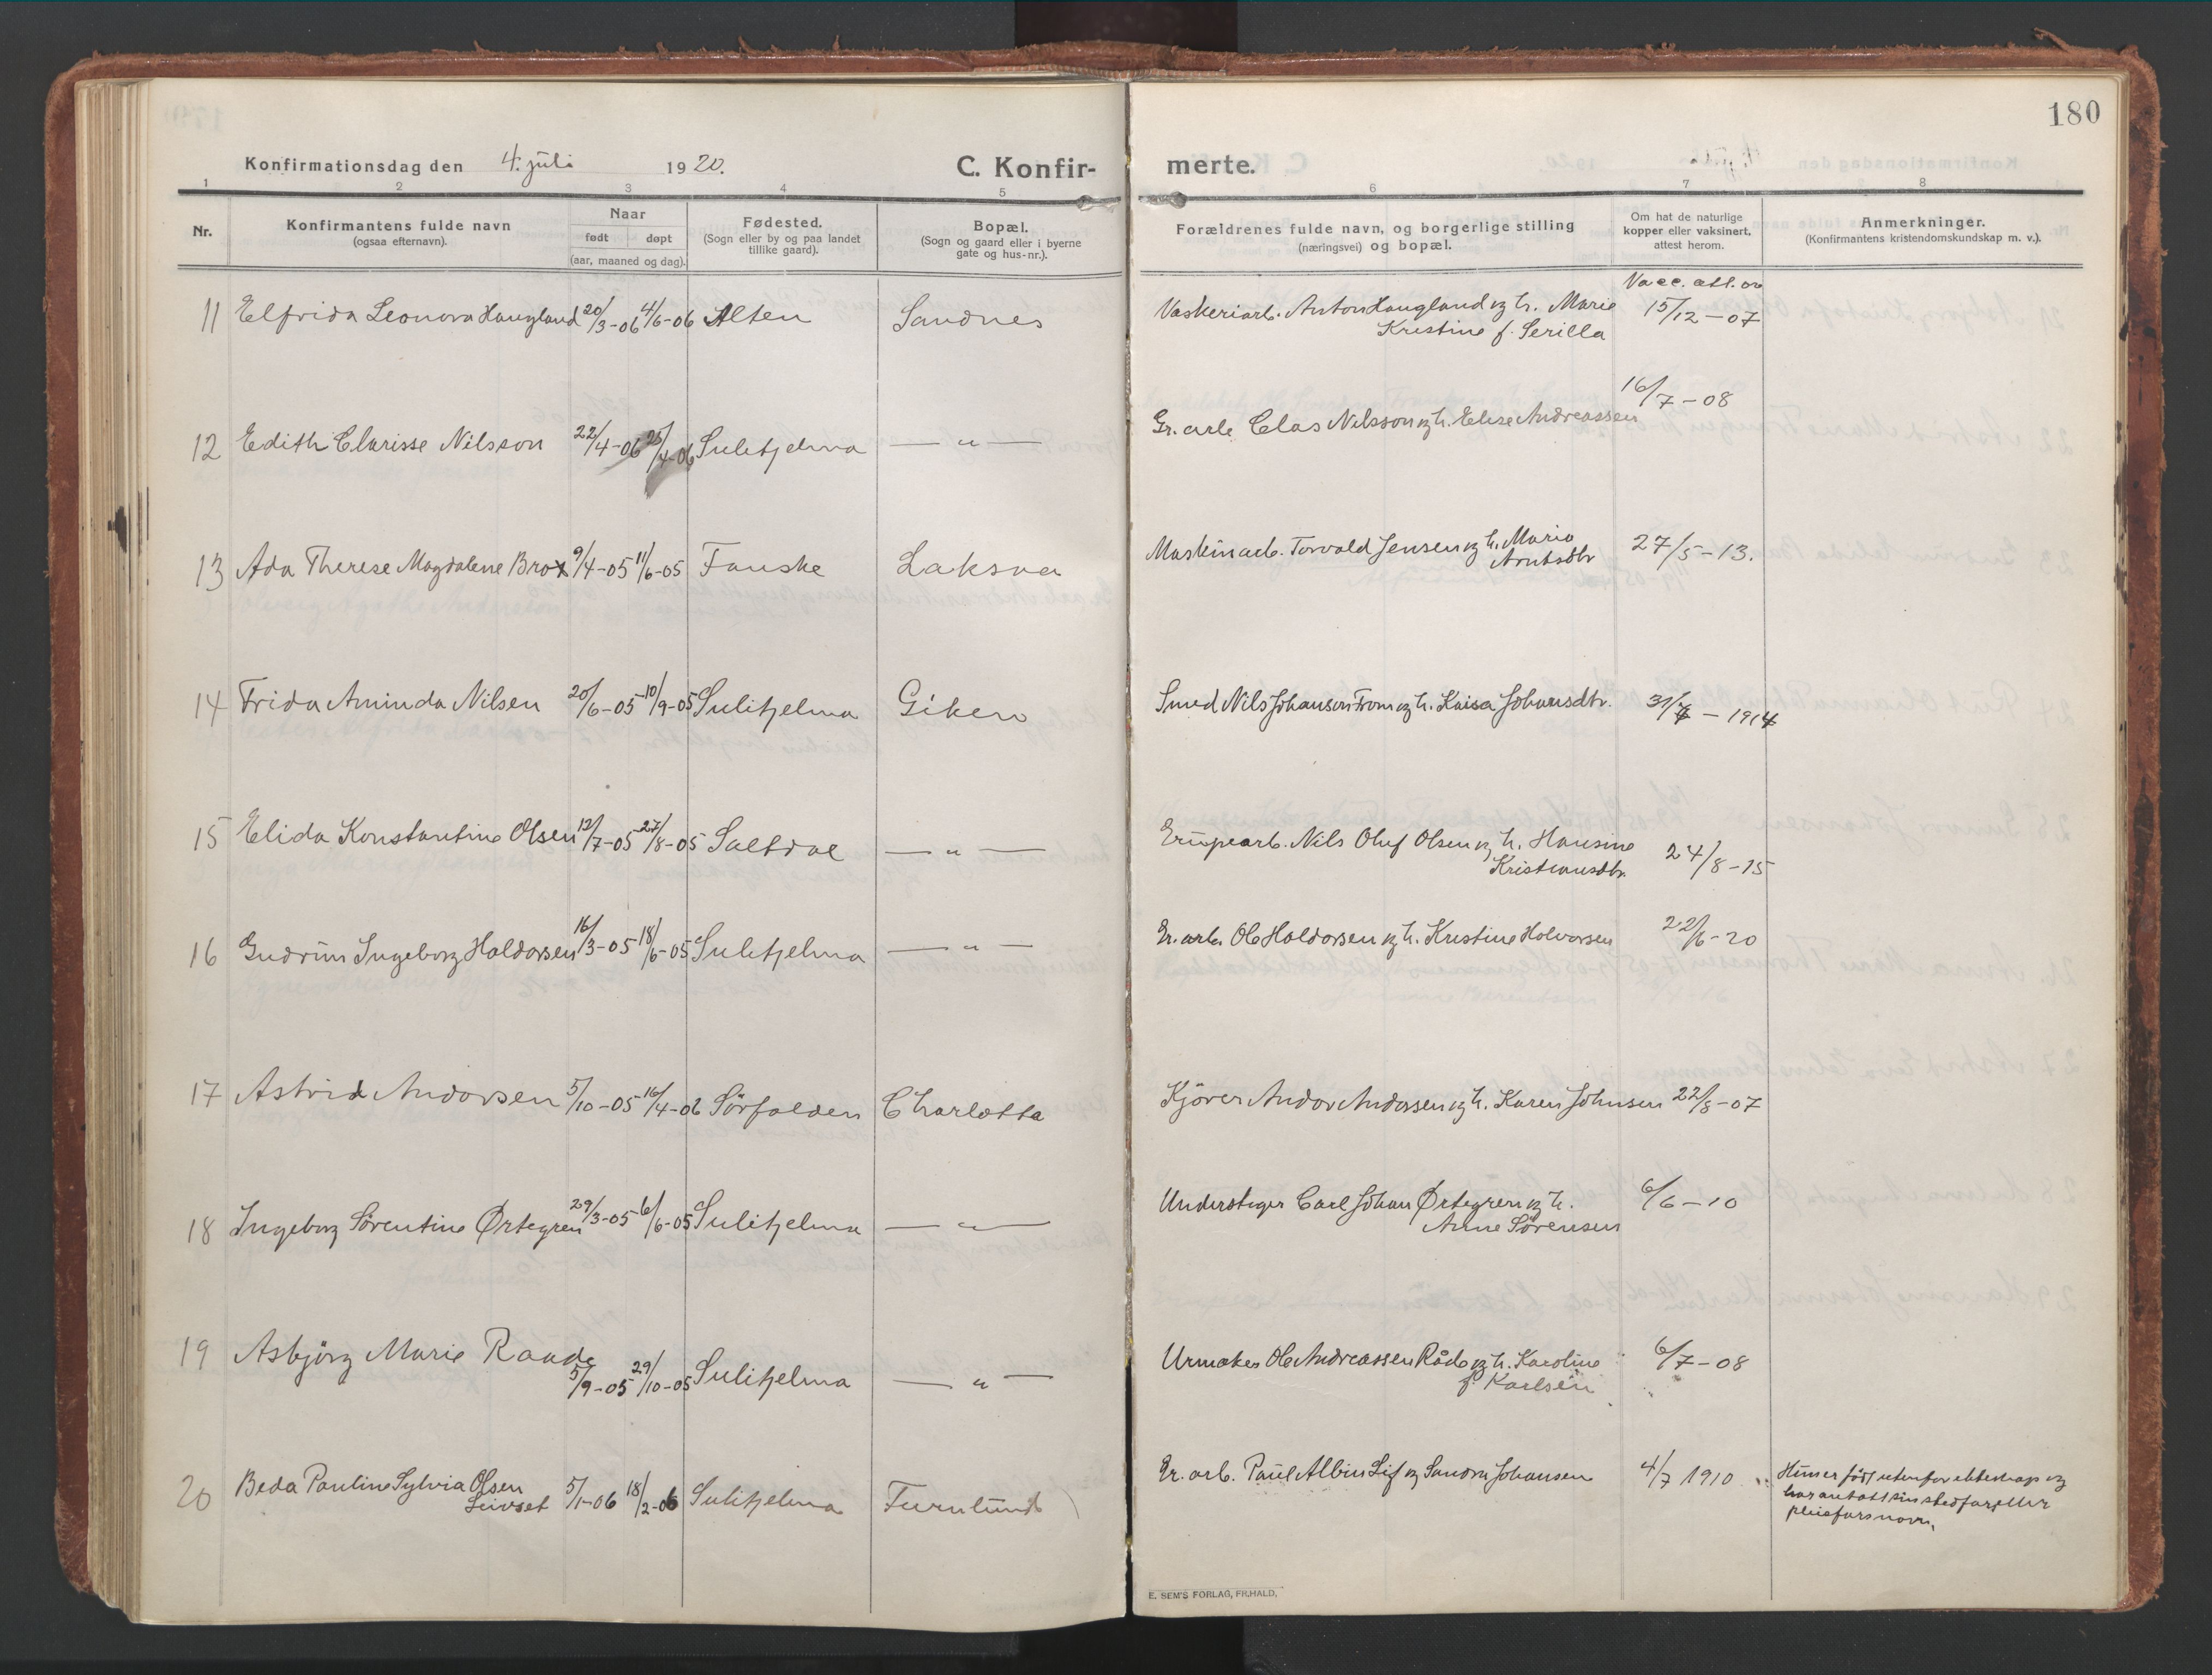 180
Konfirmationsdag den 4. juli 1920.
C. Konfir-
merte.
1 2 3 4 5 6 7 8
Nr.
Konfirmantens fulde navn
(ogsaa efternavn).
Naar
født døpt
(aar, maaned og dag).
Fødested.
(Sogn eller by og paa landet
tillike gaard).
Bopæl.
(Sogn og gaard eller i byerne
gate og hus-nr.).
Forældrenes fulde navn, og borgerlige stilling
(næringsvei) og bopæl.
Om hat de naturlige
kopper eller vaksinert,
attest herom.
Anmerkninger.
(Konfirmantens kristendomskundskap m. v.).
11 Elfrida Leonora Haugland 20/3-06 4/6-06 Alten Sandnes
Vaskeriarb. Anton Haugland og h. Marie
Kristine f. Serilla
Vacc. att. av
15/12-07
12 Edith Clarisse Nilsson 22/4-06 25/4-06 Sulitjelma — " —
Gr. arb. Clas Nilsson og h. Elise Andreassen 16/7-08
13 Ada Therese Magdalene Brox 9/4-05 11/6-05 Fauske Laksaa
Maskinarb. Torvald Jensen og h. Maria
Arntsdtr 27/5-13.
14 Frida Aminda Nilsen 20/6-05 10/9-05 Sulitjelma Giken
Smed Nils Johansen From og h. Kaisa Johansdtr. 31/7-1914
15 Elida Konstantine Olsen 12/7-05 27/8-05 Saltdal — " —
Grubearb. Nils Oluf Olsen og h. Hansine
Kristiansdtr. 24/8-15
16 Gudrun Ingeborg Haldorsen 16/3-05 18/6-05 Sulitjelma — " —
Gr. arb. Ole Haldorsen og h. Kristine Halvorsen 22/6-20
17 Astrid Andorsen 5/10-05 16/4-06 Sörfolden Charlotta
Kjörer Andor Andersen og h. Karen Johnsen 22/8-07
18 Ingeborg Sörentine Örtegren 29/3-05 6/6-05 Sulitjelma — " —
Understiger Carl Johan Örtegren og h.
Anne Sörensen 6/6-10
19 Asbjörg Marie Raade 5/9-05 29/10-05 Sulitjelma — " —
Urmaker Ole Andreassen Råde og h. Karoline
f. Karlsen 6/7-08
20 Beda Pauline Sylvia Olsen
Leivset 5/1-06 18/2-06 Sulitjelma Furulund
Gr. arb. Paul Albin Lif og Sandra Johansen 4/7 1910
Hun er född utenfor ekteskap og
har antatt sin stedfars eller
pleiefars navn.
E. SEM'S FORLAG, FR.HALD.